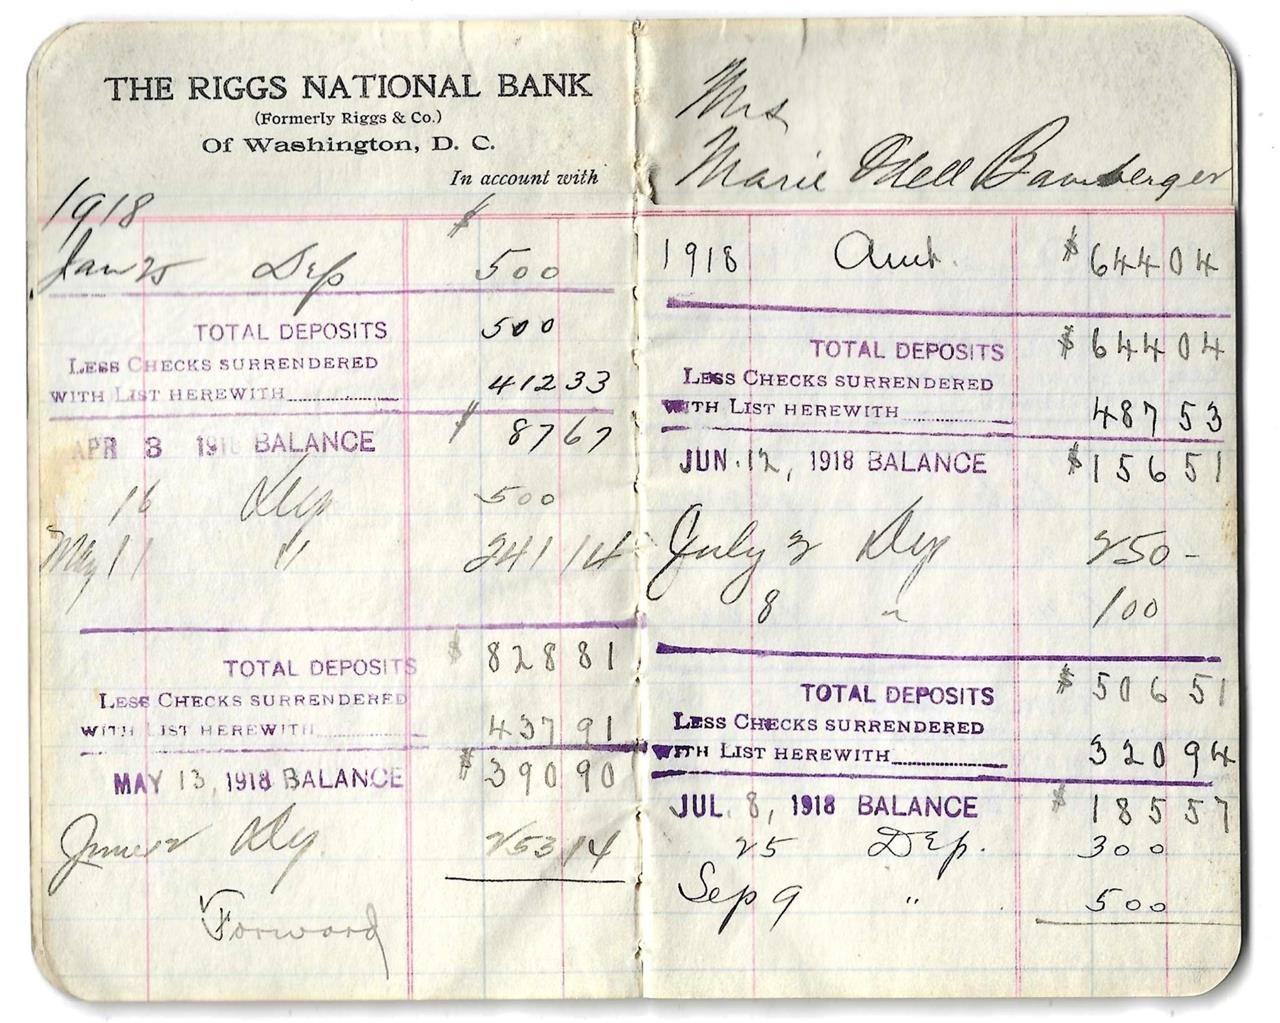 THE RIGGS NATIONAL BANK
(Formerly Riggs & Co.)
Of Washington, D. C.
In account with
1918 $
Jan 25 Dep 500
TOTAL DEPOSITS 500
LESS CHECKS SURRENDERED
WITH LIST HEREWITH 412 33
APR 8 1918 BALANCE $ 87 67
16 Dep 500
May 11 " 241 14
TOTAL DEPOSITS $ 828 81
LESS CHECKS SURRENDERED
WITH LIST HEREWITH 437 91
MAY 13, 1918 BALANCE $ 390 90
June 2 Dep. 253 14
Forward
Mrs
Marie Odell Bamberger
1918 Amt. $ 644 04
TOTAL DEPOSITS $ 644 04
LESS CHECKS SURRENDERED
WITH LIST HEREWITH 487 53
JUN. 12, 1918 BALANCE $ 156 51
July 2 Dep 250 -
8 " 100
TOTAL DEPOSITS $ 506 51
LESS CHECKS SURRENDERED
WITH LIST HEREWITH 320 94
JUL. 8, 1918 BALANCE $ 185 57
25 Dep. 300
Sep 9 " 500